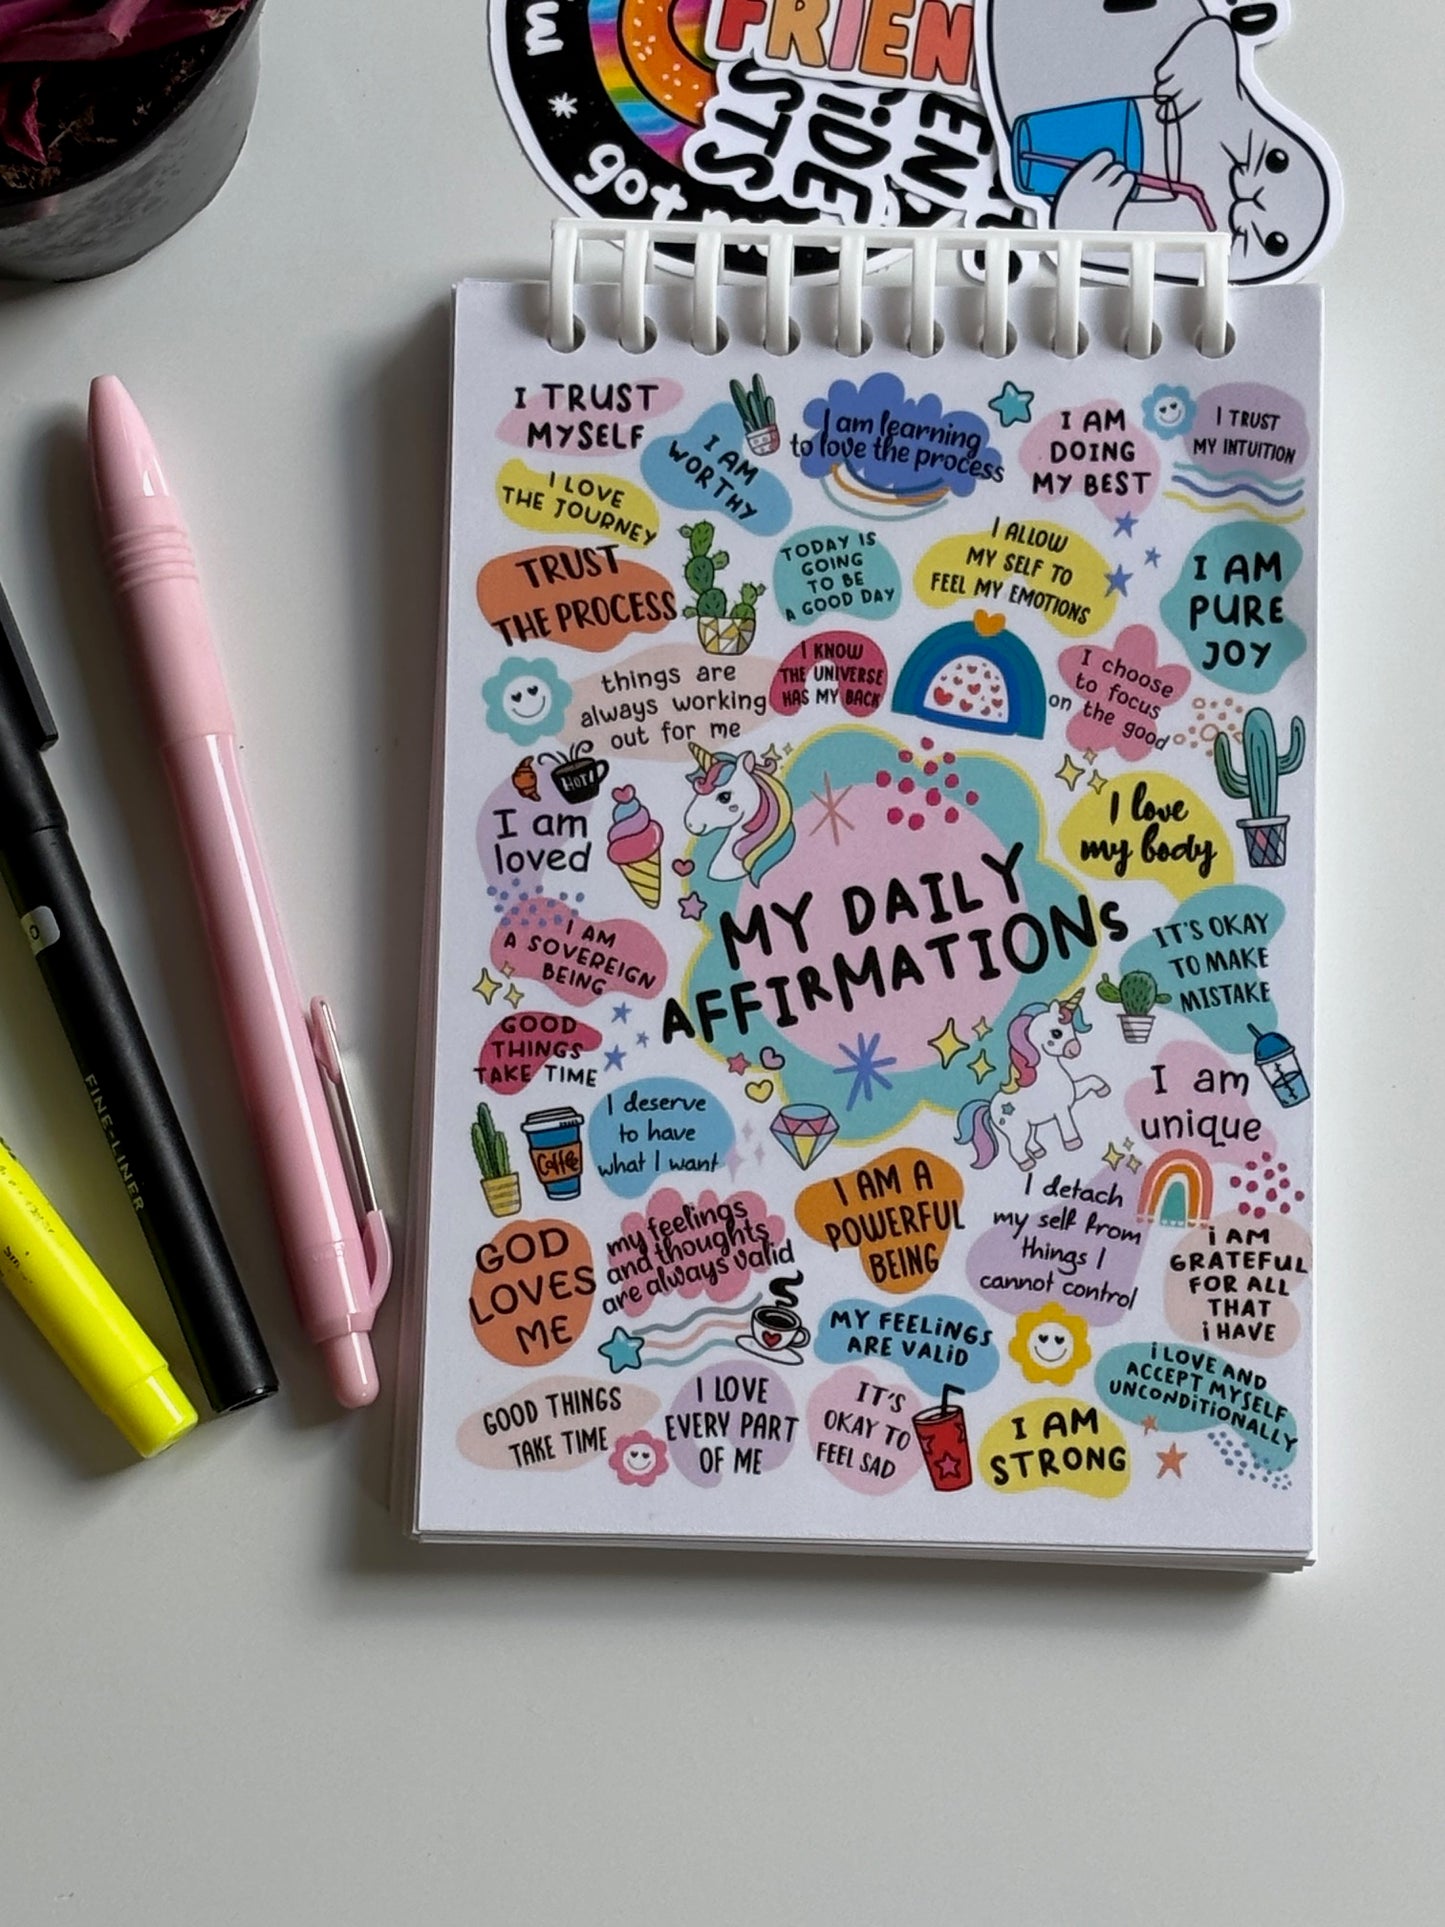 FRIEN
I TRUST
MYSELF
I AM
WORTHY
I am learning
to love the process
I AM
DOING
MY BEST
I TRUST
MY INTUITION
I LOVE
THE JOURNEY
TRUST
THE PROCESS
TODAY IS
GOING
TO BE
A GOOD DAY
I ALLOW
MY SELF TO
FEEL MY EMOTIONS
I AM
PURE
JOY
things are
always working
out for me
I KNOW
THE UNIVERSE
HAS MY BACK
I choose
to focus
on the good
HOT!
I am
loved
I love
my body
MY DAILY
AFFIRMATIONS
I AM
A SOVEREIGN
BEING
IT'S OKAY
TO MAKE
MISTAKE
GOOD
THINGS
TAKE TIME
I deserve
to have
what I want
Coffee
I am
unique
GOD
LOVES
ME
my feelings
and thoughts
are always valid
I AM A
POWERFUL
BEING
I detach
my self from
things I
cannot control
i AM
GRATEFUL
FOR ALL
THAT
i HAVE
MY FEELiNGS
ARE VALiD
i LOVE AND
ACCEPT MYSELF
UNCONDiTiONALLY
GOOD THINGS
TAKE TIME
I LOVE
EVERY PART
OF ME
IT'S
OKAY TO
FEEL SAD
I AM
STRONG
FINE-LINER